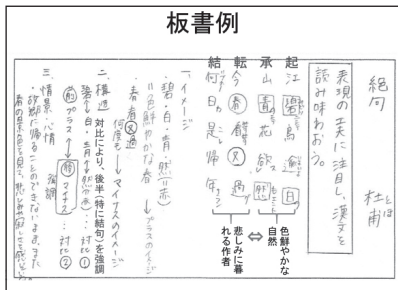 板書例
絶句
杜甫
とほ
表現の工夫に注目し、漢文を
読み味わおう。
起 江碧鳥逾白
承 山青花欲然
転 今春看又過
結 何日是帰年
色鮮やかな
自然
⇔
悲しみに暮
れる作者
一、イメージ
・碧・白・青・然(=赤)
=色鮮やかな春 → プラスのイメージ
・春看又過
何度も → マイナスのイメージ
二、構造
対比により、後半(特に結句)を強調
碧 白・青 然(赤)…対比①
前 プラス 後 マイナス…対比②
強調
三、情景・心情
・故郷に帰ることのできないまま、また
春の景色を見て、悲しみや寂しさを感じる。